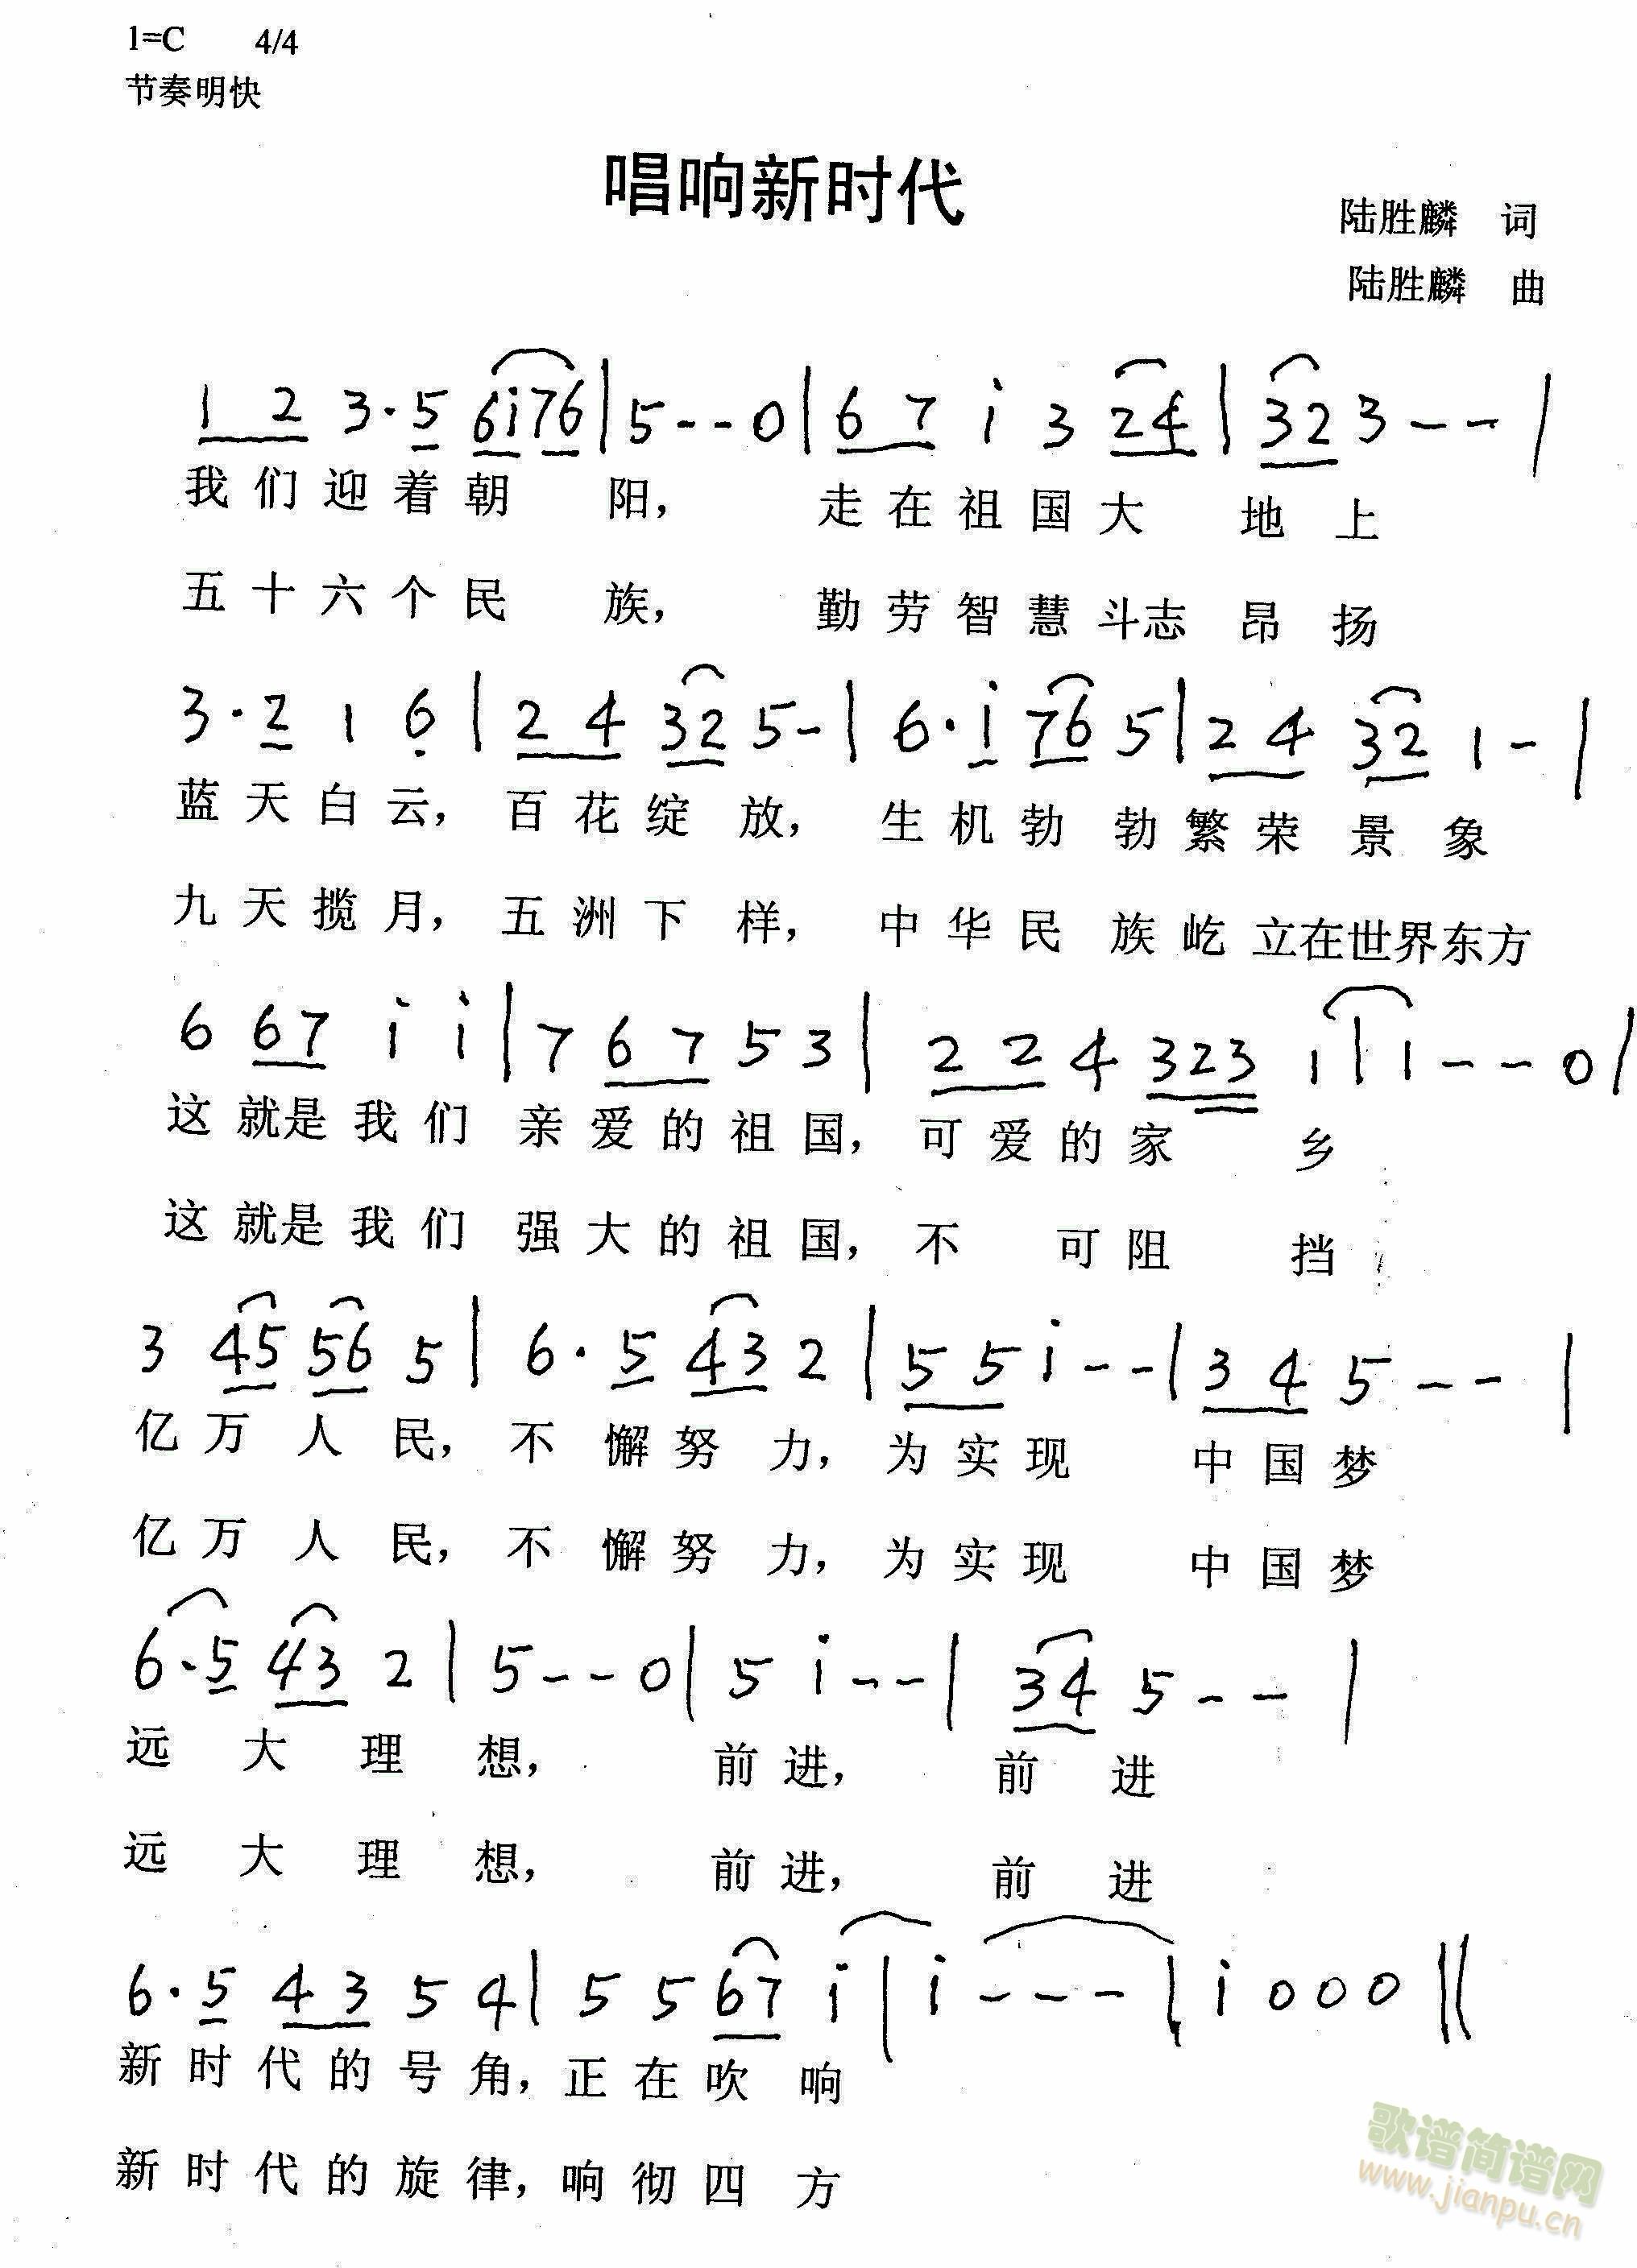 1=C 4/4
节奏明快
唱响新时代
陆胜麟 词
陆胜麟 曲
1 2 3·5 6i76|5--0|6 7 i 3 24|323--|
我们迎着朝 阳， 走在祖国大 地 上
五十六个民 族， 勤劳智慧斗志 昂 扬
3·2 1 6|2 4 32 5-|6·i 76 5|2 4 32 1-|
蓝天白云，百花绽 放， 生机勃 勃繁荣 景 象
九天揽月，五洲下 样， 中华民 族屹 立在世界东方
6 67 i i|7 6 7 5 3|2 2 4 323 i|i---0|
这 就是我们 亲爱的祖国，可爱的家 乡
这 就是我们 强大的祖国，不 可阻 挡
3 45 56 5|6·5 43 2|5 5 i--|3 4 5--|
亿万 人 民，不 懈努 力，为实现 中国梦
亿万 人 民，不 懈努 力，为实现 中国梦
6·5 43 2|5--0|5 i--|34 5--|
远 大 理 想， 前进， 前 进
远 大 理 想， 前进， 前 进
6·5 4 3 5 4|5 5 67 i|i---|i 0 0 0||
新时代的号角，正在吹 响
新时代的旋律，响彻四 方
歌谱简谱网
www.jianpu.cn